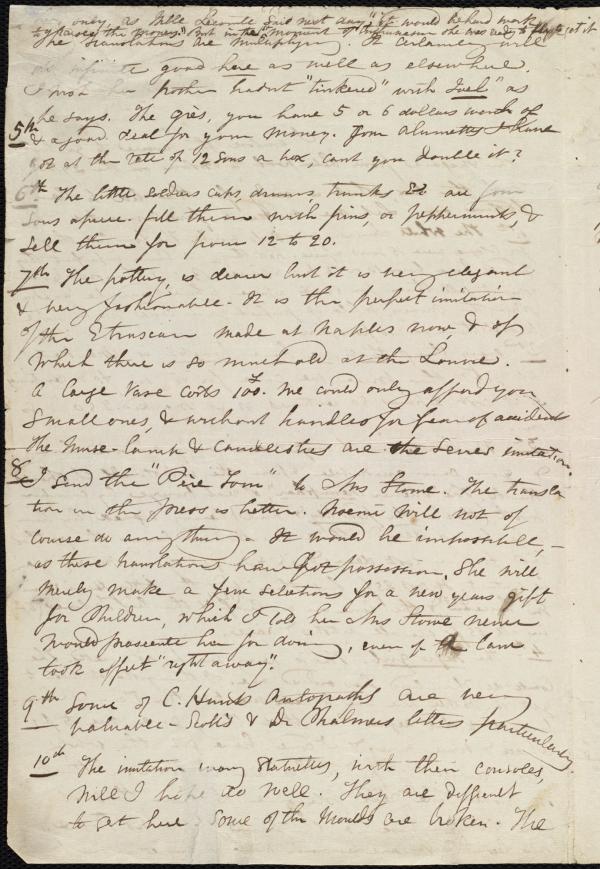 only, as Mlle Lecomte said next day, "it would be hard work
to the money." But in the "moment of she was ready to it
The translations are multiplying. It certainly will
do infinite good here as well as elsewhere.
I wish her brother hadn't "tinkered" with "Juel" as
he says. The gris, you have 5 or 6 dollars worth of
5th & a good deal for your money. Your alumettes I have
got at the rate of 12 sous a box, can't you double it?
6th The little soldiers caps, drums, trunks &c are four
sous apiece. fill them with pins, or peppermints, &
sell them for from 12 to 20.
7th The pottery is dearer but it is very elegant
& very fashionable. It is the perfect imitation
of the Etruscan made at Naples now, & of
which there is so much old at the Louvre. —
A large Vase costs 100f. We could only afford you
small ones, & without handles for fear of accident
The Nurse-lamp & candlesticks are the Sevres imitation.
8 I send the "Père Tom" to Mrs Stowe. The transla
tion in the press is better. Noemi will not of
course do anything. It would be impossible, —
as these translations have got possession. She will
merely make a few selections for a new years gift
for Children, which I told her Mrs Stowe never
would prosecute her for doing, even if the law
took effect "right away".
9th Some of C. Hunts Autographs are very
valuable - Scott's & Dr Chalmers letters particularly.
10th The imitation ivory statuettes, with their consoles,
will I hope do well. They are difficult
to get here. Some of the moulds are broken. The